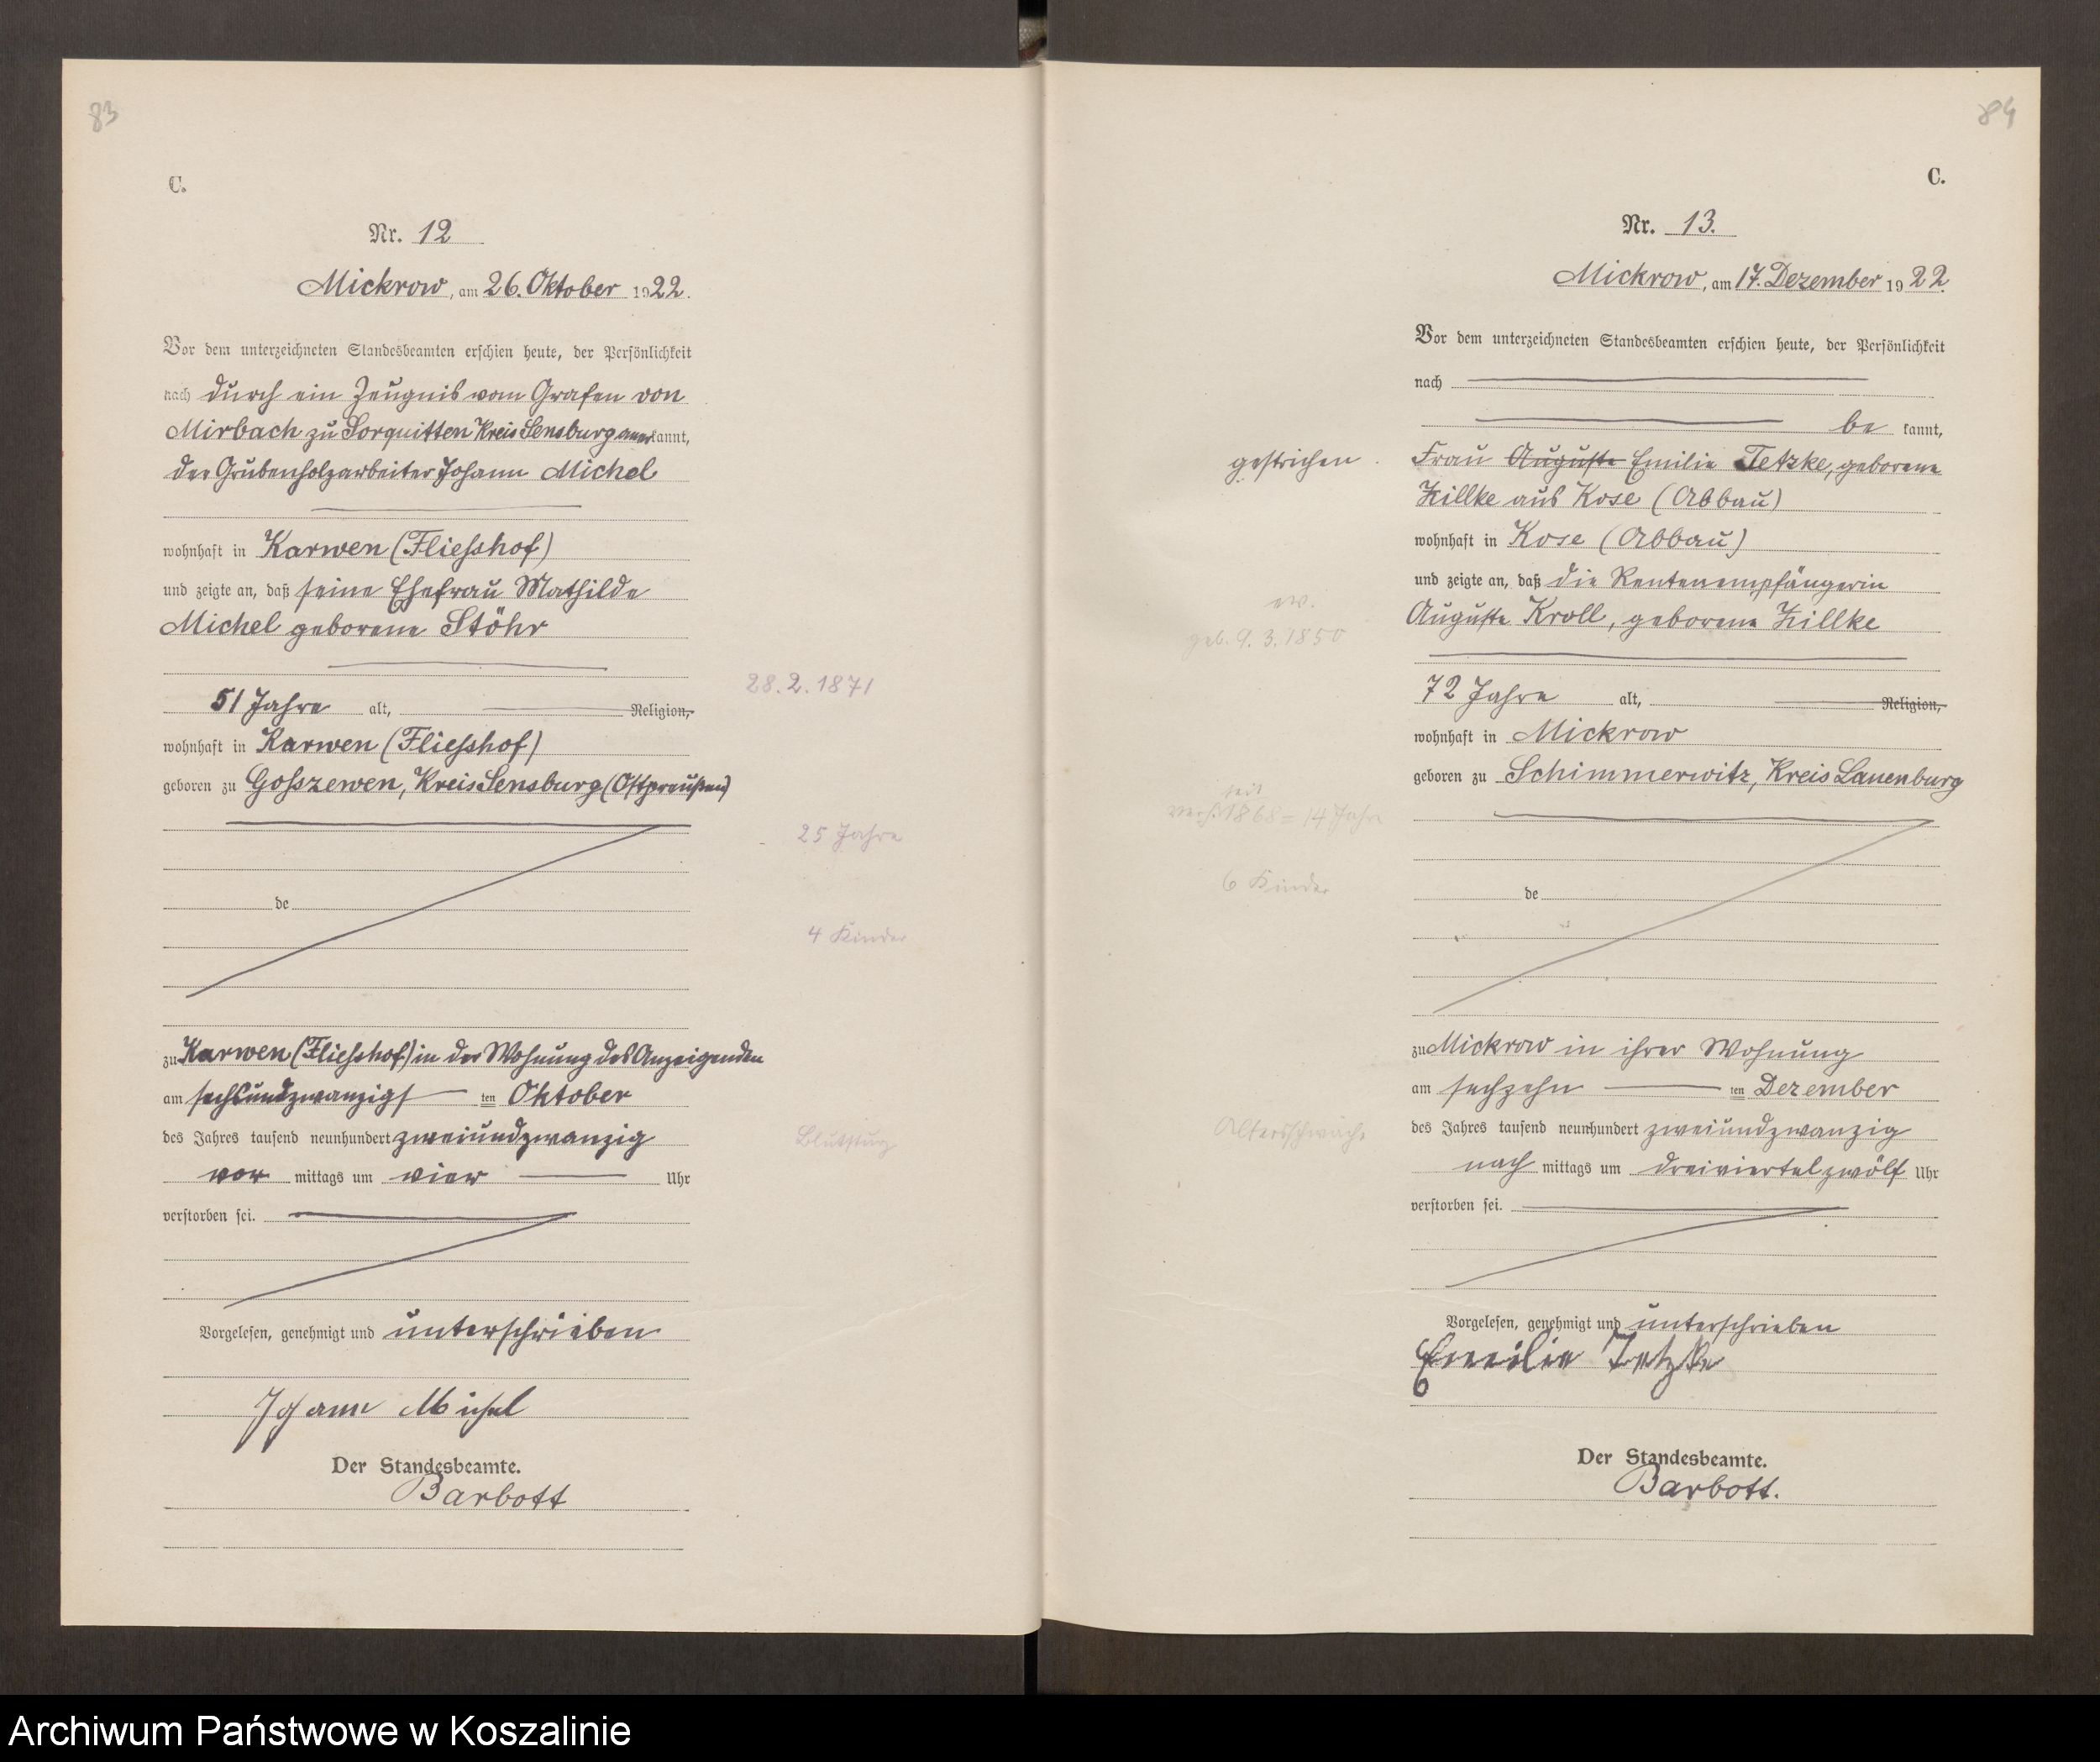 83
C.
Nr. 12
Mickrow, am 26. Oktober 1922.
Vor dem unterzeichneten Standesbeamten erschien heute, der Persönlichkeit
nach durch ein Zeugnis vom Grafen von
Mirbach zu Sorquitten Kreis Sensburg anerkannt,
der Grubenholzarbeiter Johann Michel
wohnhaft in Karwen (Fliesshof)
und zeigte an, daß seine Ehefrau Mathilde
Michel geborene Stöhr
28.2.1871
51 Jahre alt, Religion,
wohnhaft in Karwen (Fliesshof)
geboren zu Gosszewen, Kreis Sensburg (Ostpreußen)
25 Jahre
de
4 Kinder
zu Karwen (Fliesshof) in der Wohnung des Anzeigenden
am sechsundzwanzigsten Oktober
des Jahres tausend neunhundert zweiundzwanzig
Blutsturz
vor mittags um vier Uhr
verstorben sei.
Vorgelesen, genehmigt und unterschrieben
Johann Michel
Der Standesbeamte.
Barbott
84
C.
Nr. 13.
Mickrow, am 17. Dezember 1922.
Vor dem unterzeichneten Standesbeamten erschien heute, der Persönlichkeit
nach
be kannt,
gestrichen. Frau Auguste Emilie Tetzke, geborene
Zillke aus Kose (Abbau)
wohnhaft in Kose (Abbau)
und zeigte an, daß die Rentenempfängerin
ev.
Auguste Kroll, geborene Zillke
geb. 9.3.1850
72 Jahre alt, Religion,
wohnhaft in Mickrow
geboren zu Schimmerwitz, Kreis Lauenburg
seit
1868 = 14 Jahre
6 Kinder
de
zu Mickrow in ihrer Wohnung
am sechzehn ten Dezember
Altersschwäche
des Jahres tausend neunhundert zweiundzwanzig
nach mittags um dreiviertel zwölf Uhr
verstorben sei.
Vorgelesen, genehmigt und unterschrieben
Emilie Tetzke
Der Standesbeamte.
Barbott.
Archiwum Państwowe w Koszalinie